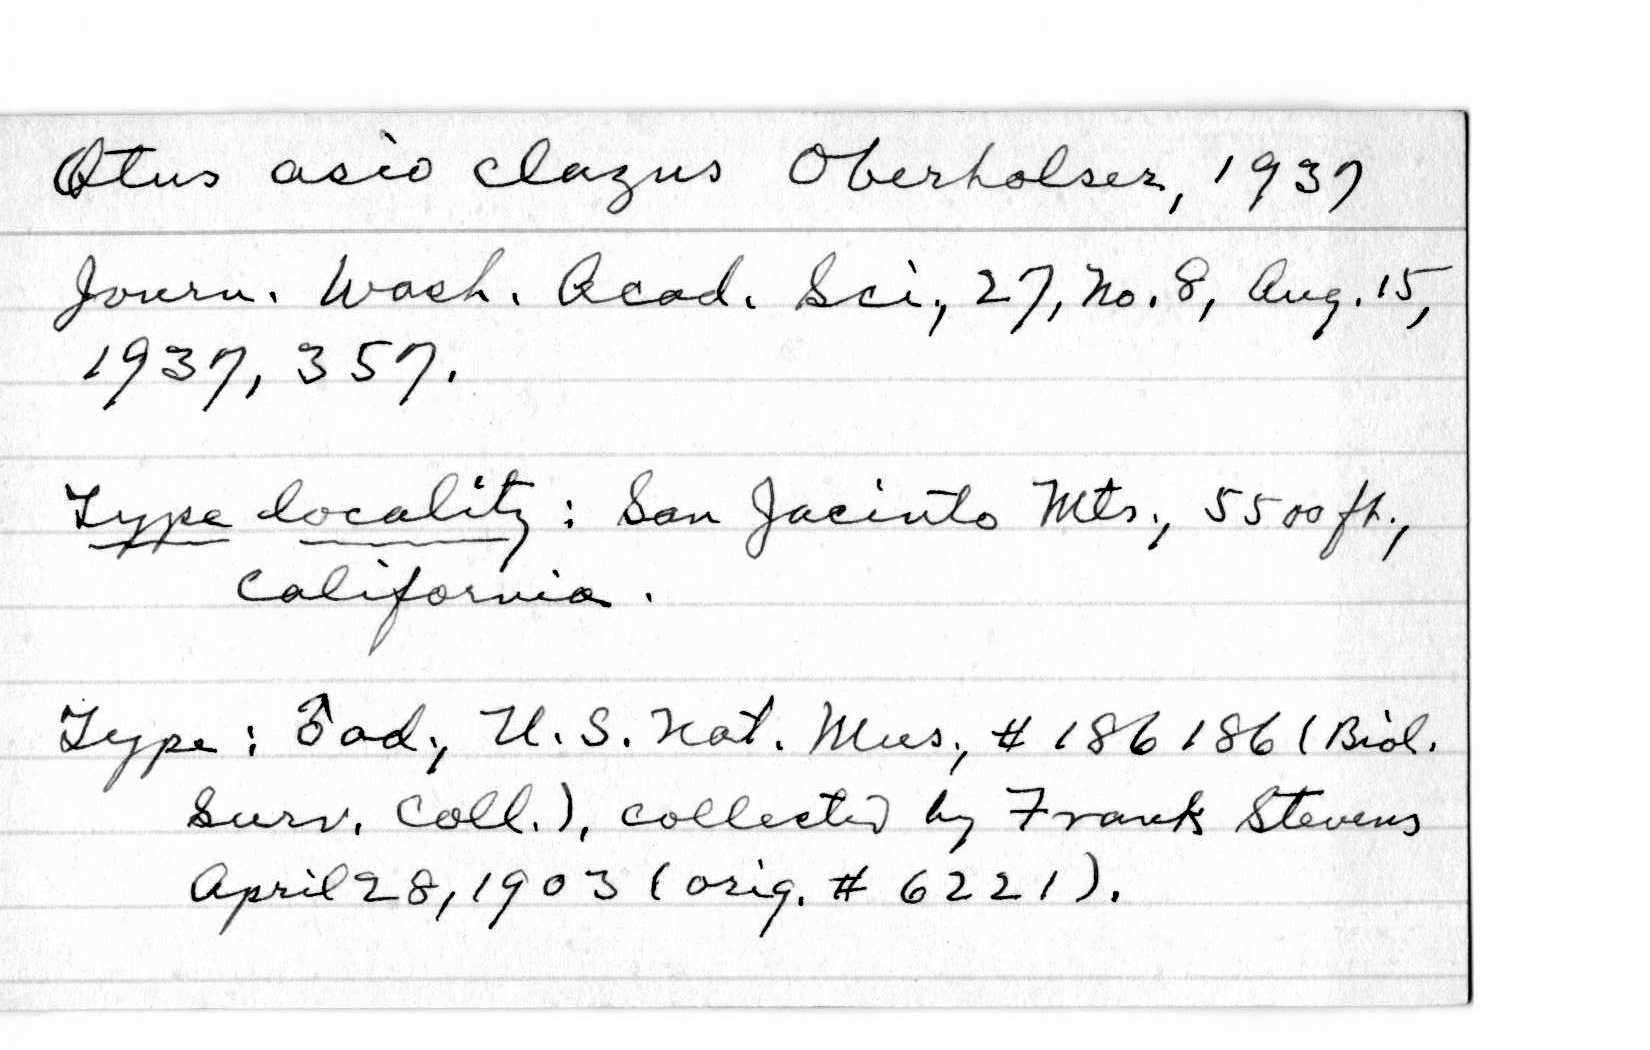 Otus asio clazus Oberholser, 1937
Journ. Wash. Acad. Sci., 27, no. 8, Aug. 15,
1937, 357.
Type locality: San Jacinto Mts., 5500 ft.,
California.
Type: ♂ ad., U. S. Nat. Mus., # 186186 (Biol.
Surv. Coll.), collected by Frank Stevens
April 28, 1903 (orig. # 6221).